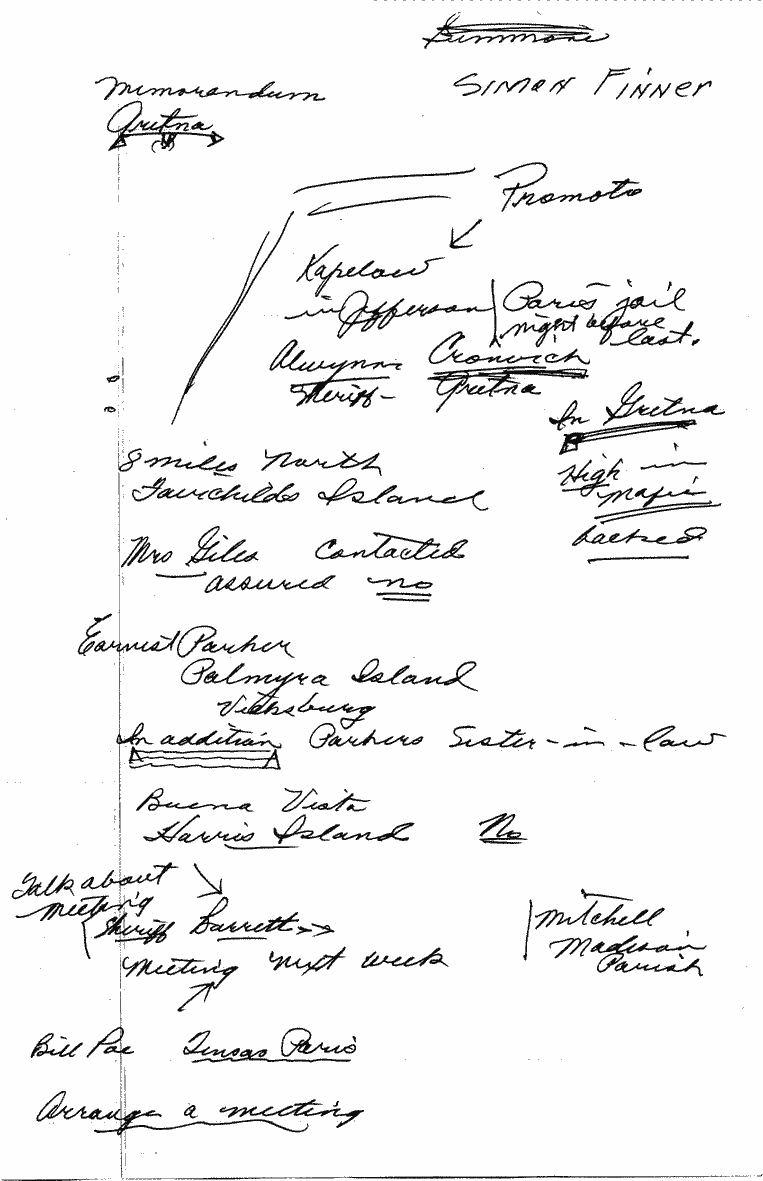 Simon Finner
Memorandum
Gretna
Promote
Kapelow
in Jefferson
Paris jail
night before
last.
Alwynn Cronvich
Sheriff - Gretna
In Gretna
High in
Mafia
backed
8 miles North
Fairchilds Island
Mrs Giles Contacted
assured no
Earnest Parker
Palmyra Island
Vicksburg
In addition Parkers Sister-in-law
Buena Vista
Harris Island No
Talk about
meeting
Sheriff Barrett
Meeting next week
Mitchell
Madison
Parish
Bill Poe Tensas Paris
Arrange a meeting